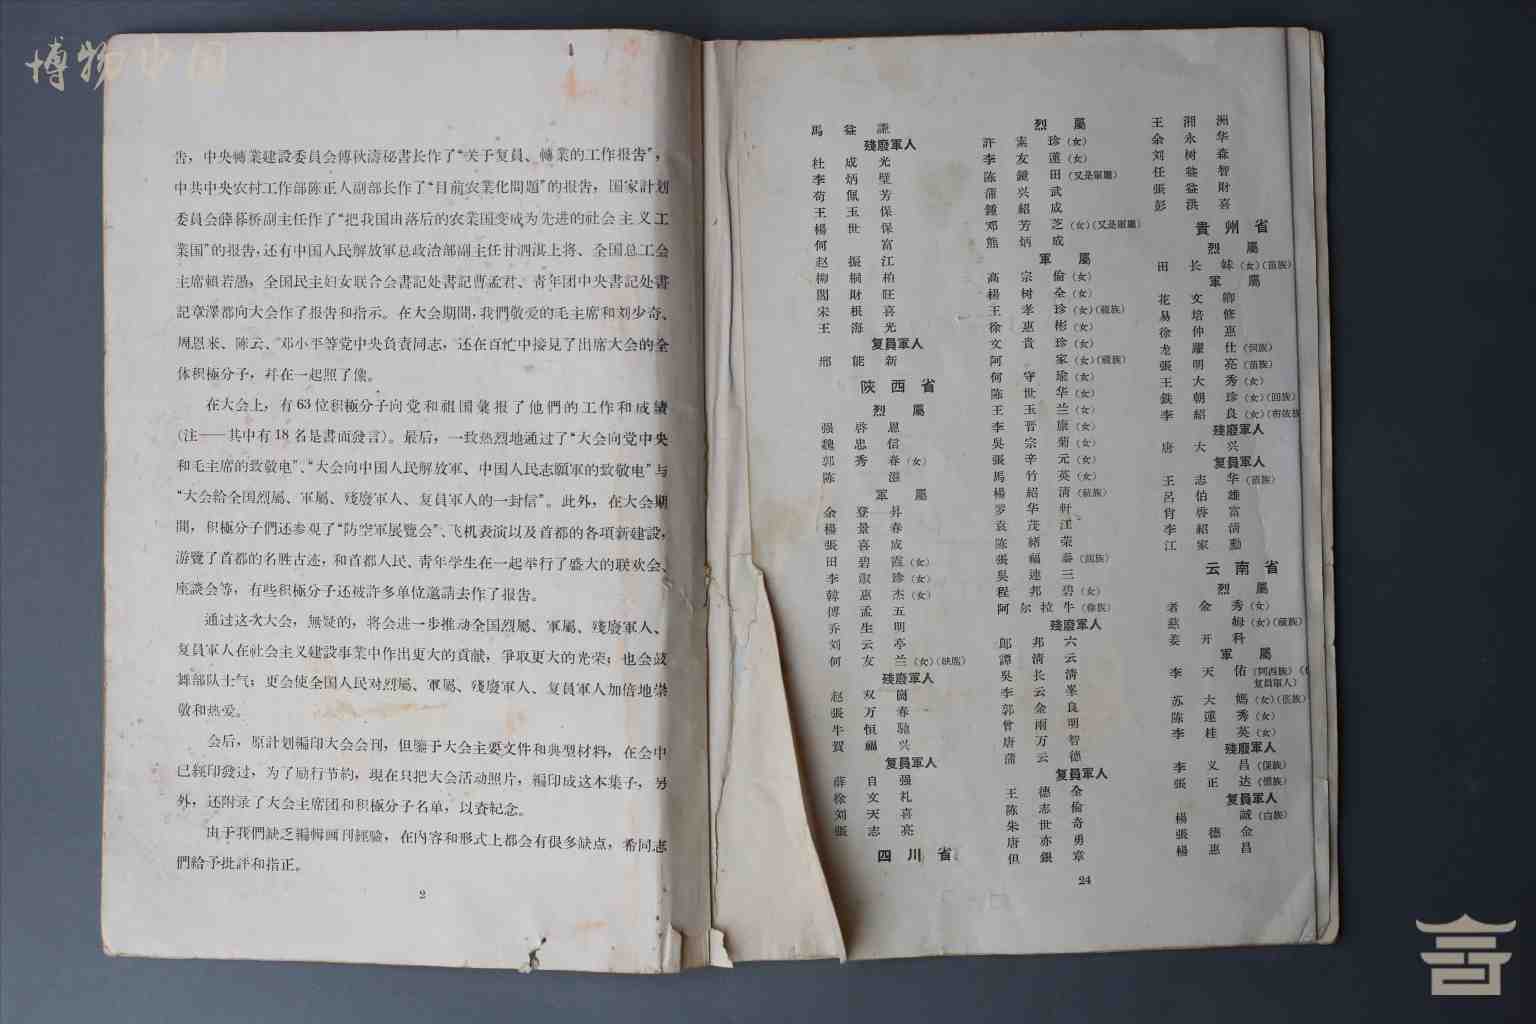 博物中国
告，中央轉業建設委員会傅秋濤秘書长作了“关于复員、轉業的工作报告”，
中共中央农村工作部陈正人副部长作了“目前农業化問題”的报告，国家計划
委員会薛暮桥副主任作了“把我国由落后的农業国变成为先进的社会主义工
業国”的报告，还有中国人民解放軍总政治部副主任甘泗淇上将、全国总工会
主席賴若愚，全国民主妇女联合会書記处書記曹孟君、青年团中央書記处書
記章澤都向大会作了报告和指示。在大会期間，我們敬爱的毛主席和刘少奇、
周恩来、陈云、邓小平等党中央負責同志，还在百忙中接見了出席大会的全
体积極分子，幷在一起照了像。
在大会上，有63位积極分子向党和祖国彙报了他們的工作和成績
(注——其中有18名是書面發言)。最后，一致热烈地通过了“大会向党中央
和毛主席的致敬电”、“大会向中国人民解放軍、中国人民志願軍的致敬电”与
“大会給全国烈屬、軍屬、殘廢軍人、复員軍人的一封信”。此外，在大会期
間，积極分子們还参观了“防空軍展覽会”、飞机表演以及首都的各項新建設，
游覽了首都的名胜古迹，和首都人民、青年学生在一起举行了盛大的联欢会、
座談会等，有些积極分子还被許多单位邀請去作了报告。
通过这次大会，無疑的，将会进一步推动全国烈屬、軍屬、殘廢軍人、
复員軍人在社会主义建設事業中作出更大的貢献，爭取更大的光荣；也会鼓
舞部队士气；更会使全国人民对烈屬、軍屬、殘廢軍人、复員軍人加倍地崇
敬和热爱。
会后，原計划編印大会会刊，但鑒于大会主要文件和典型材料，在会中
已經印發过，为了励行节約，現在只把大会活动照片，編印成这本集子，另
外，还附录了大会主席团和积極分子名单，以資紀念。
由于我們缺乏編輯画刊經驗，在內容和形式上都会有很多缺点，希同志
們給予批評和指正。
2
馬益謙
殘廢軍人
杜成光
李炳璧
苟佩芳
王玉保
楊世保
何富
赵振江
柳桐柏
閻財旺
宋根喜
王海光
复員軍人
邢能新
陝西省
烈屬
强啓恩
魏忠信
郭秀春(女)
陈滋
軍屬
余登昇
楊景春
張喜成
田碧霞(女)
李淑珍(女)
韓惠杰(女)
傅孟五
乔生明
刘云亭
何友兰(女)
殘廢軍人
赵双閣
張万春
牛恒馳
賀福兴
复員軍人
薛自强
徐文礼
刘天喜
張志亮
四川省
烈屬
許素珍(女)
李友蓮(女)
陈鏡田(又是軍屬)
蒲兴武
鍾紹成
邓芳芝(女)(又是軍屬)
熊炳成
軍屬
高宗倫(女)
楊树全(女)
王孝珍(女)(藏族)
徐惠彬(女)
文貴珍(女)
阿家(女)(藏族)
何守瑜(女)
陈世华(女)
王玉兰(女)
李晋康(女)
吳宗菊(女)
張辛元(女)
馬竹英(女)
楊紹淸(藏族)
罗华軒
袁茂江
陈緒荣
張福泰(回族)
吳連三
程邦碧(女)
阿尔拉牛(彝族)
殘廢軍人
鄭邦六
譚清云
吳长清
李云峯
郭金良
曾雨明
唐万智
蒲云德
复員軍人
王德全
陈志倫
朱世奇
唐亦勇
但銀章
24
王湘洲
余永华
刘树森
任益智
張益財
彭洪喜
貴州省
烈屬
田长妹(女)(苗族)
軍屬
花文卿
易培修
徐仲惠
龙躍仕(侗族)
張明亮(苗族)
王大秀(女)
鉄朝珍(女)(回族)
李紹良(女)(布依族
殘廢軍人
唐大兴
复員軍人
王志华(苗族)
呂伯雄
肖啓富
李紹清
江家勳
云南省
烈屬
者金秀(女)
慈姆(女)(藏族)
姜开科
軍屬
李天佑(阿西族)(
复員軍人)
苏大媽(女)
陈蓮秀(女)
李桂英(女)
殘廢軍人
李义昌
張正达
复員軍人
楊誠(白族)
張德金
楊惠昌